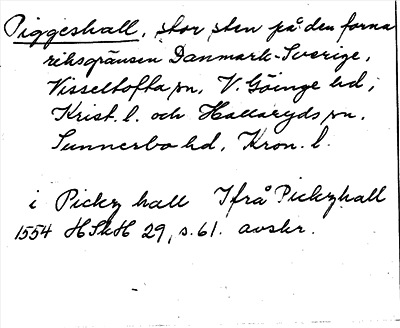 Piggeshall, stor sten på den forna
riksgränsen Danmark-Sverige,
Visseltofta sn, V. Göinge hd,
Krist. l. och Hallaryds sn.
Sunnerbo hd, Kron. l.
i Pickz hall Ifrå Pickzhall
1554 HSkH 29, s. 61. avskr.